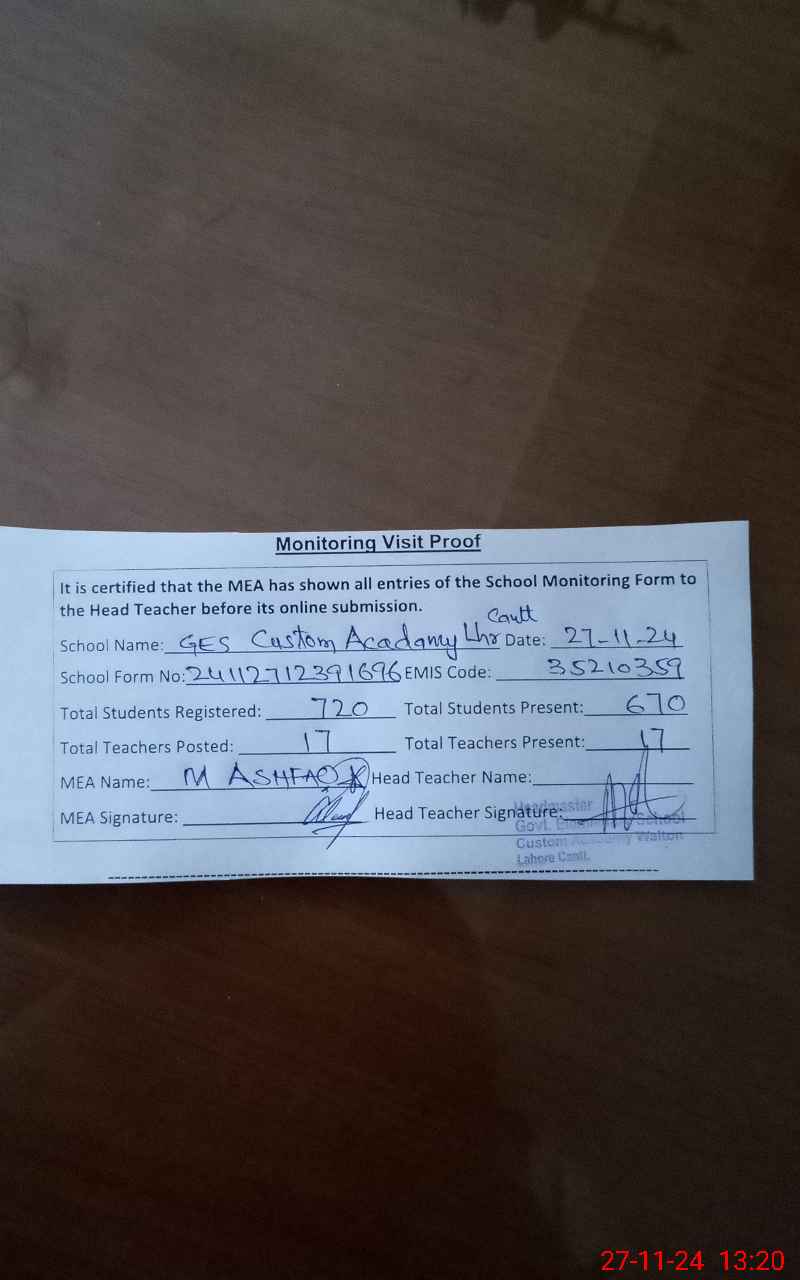 Monitoring Visit Proof
It is certified that the MEA has shown all entries of the School Monitoring Form to
the Head Teacher before its online submission.
School Name: GES Custom Acadamy Lhr Cantt Date: 27-11-24
School Form No: 24112712391696 EMIS Code: 35210359
Total Students Registered: 720 Total Students Present: 670
Total Teachers Posted: 17 Total Teachers Present: 17
MEA Name: M ASHFAQ Head Teacher Name:
MEA Signature: Head Teacher Signature:
Headmaster
Govt. School
Custom Academy Walton
Lahore Cantt.
27-11-24 13:20